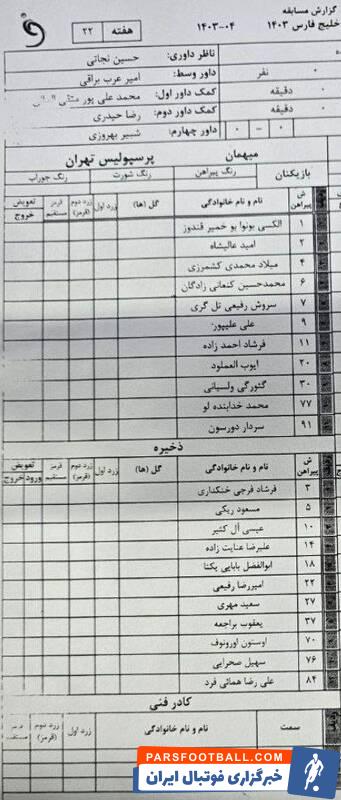 گزارش مسابقه
خلیج فارس ۱۴۰۳ ۰۴-۱۴۰۳ هفته ۲۲
ناظر داوری: حسین نجاتی
۰ نفر داور وسط: امیر عرب براقی
۰ دقیقه کمک داور اول: محمد علی پور
۰ دقیقه کمک داور دوم: رضا حیدری
۰ – ۰ داور چهارم: شبیر بهروزی
میهمان پرسپولیس تهران
بازیکنان رنگ پیراهن رنگ شورت رنگ جوراب
ش پیراهن نام و نام خانوادگی گل (ها) زرد اول زرد دوم (قرمز) قرمز مستقیم تعویض خروج
۱ الکسی بونوا یو خمیر قندوز
۲ امید عالیشاه
۴ میلاد محمدی کشمرزی
۶ محمدحسین کنعانی زادگان
۷ سروش رفیعی تل گری
۹ علی علیپور
۱۱ فرشاد احمد زاده
۲۰ ایوب العملود
۳۰ گئورگی ولسیانی
۷۷ محمد خدابنده لو
۹۱ سردار دورسون
ذخیره
ش پیراهن نام و نام خانوادگی گل (ها) زرد اول زرد دوم (قرمز) قرمز مستقیم تعویض ورود خروج
۳ فرشاد فرجی خنکداری
۵ مسعود ریگی
۱۰ عیسی آل کثیر
۱۴ علیرضا عنایت زاده
۱۸ ابوالفضل بابایی یکتا
۲۲ امیررضا رفیعی
۲۷ سعید مهری
۳۷ یعقوب براجعه
۷۰ اوستون اورونوف
۷۶ سهیل صحرایی
۸۴ علی رضا همائی فرد
کادر فنی
سمت نام و نام خانوادگی زرد اول زرد دوم (قرمز)
PARSFOOTBALL.COM
خبرگزاری فوتبال ایران